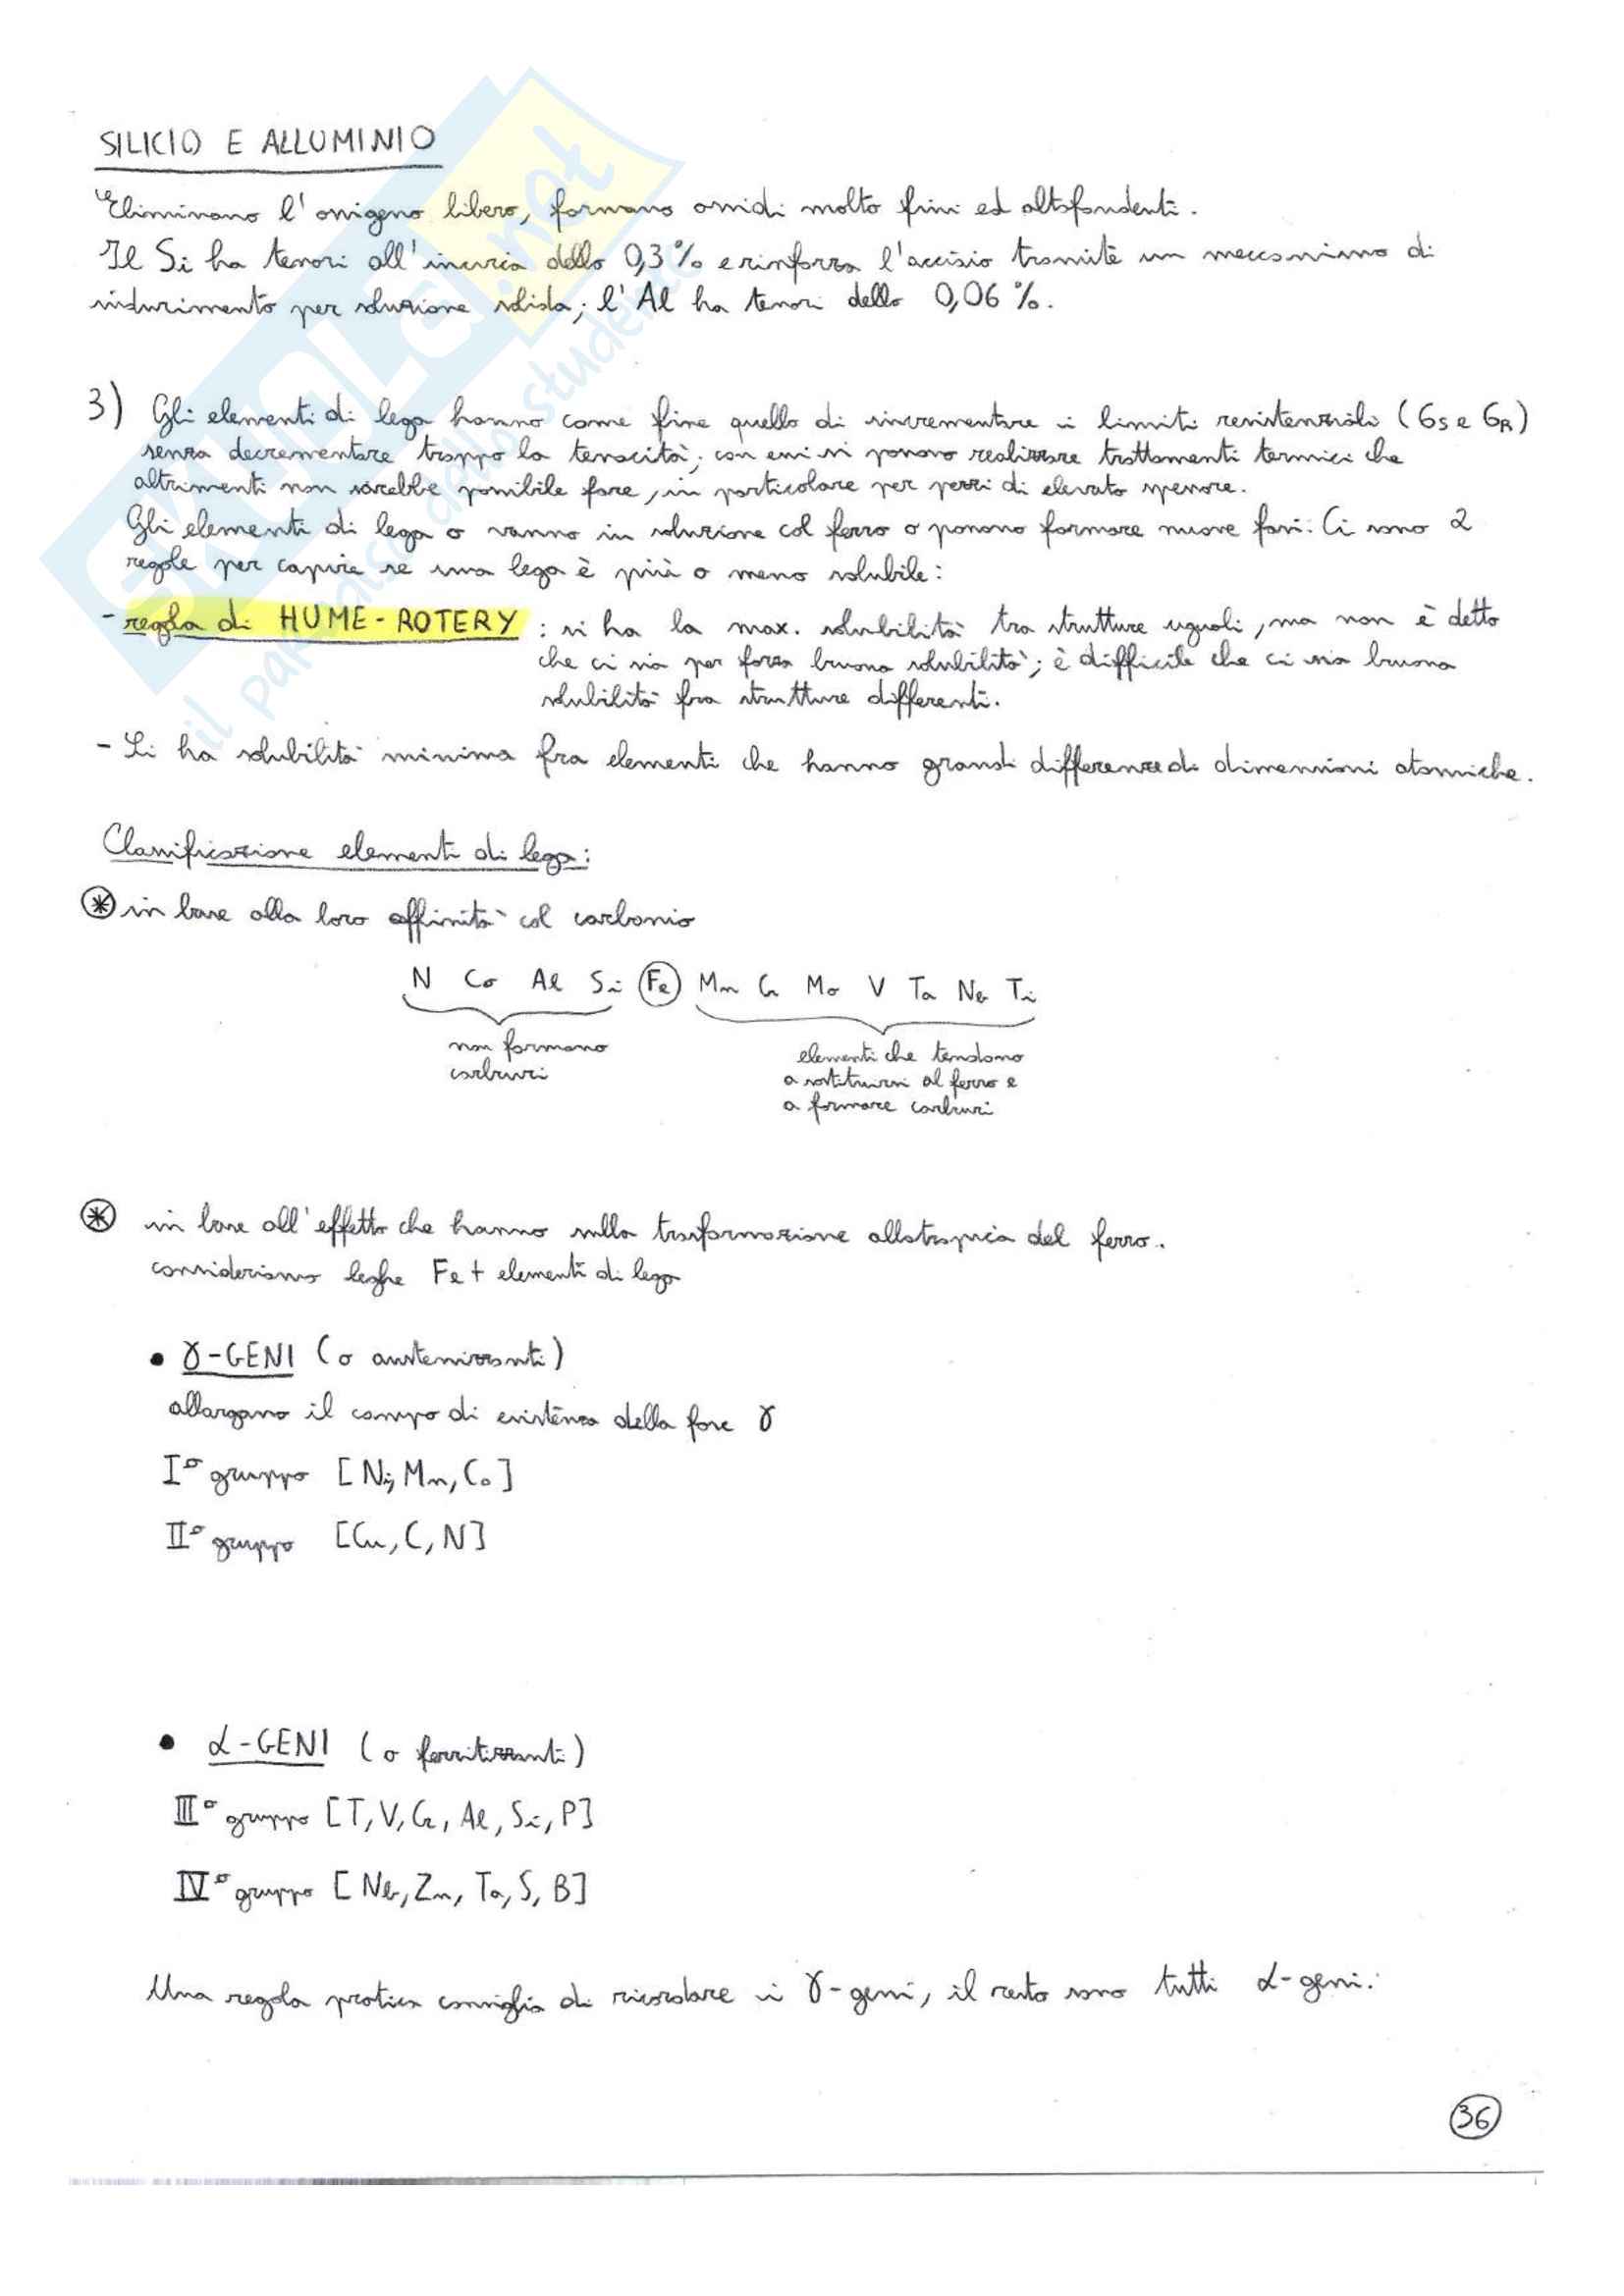 SILICIO E ALLUMINIO
Eliminano l'ossigeno libero, formano ossidi molto fini ed altofondenti.
Il Si ha tenori all'incirca dello 0,3% e rinforza l'acciaio tramite un meccanismo di
indurimento per soluzione solida; l'Al ha tenori dello 0,06%.
3) Gli elementi di lega hanno come fine quello di incrementare i limiti resistenziali (σS e σR)
senza decrementare troppo la tenacità; con essi si possono realizzare trattamenti termici che
altrimenti non sarebbe possibile fare, in particolare per pezzi di elevato spessore.
Gli elementi di lega o vanno in soluzione col ferro o possono formare nuove fasi. Ci sono 2
regole per capire se una lega è più o meno solubile:
- regola di HUME-ROTERY : si ha la max. solubilità tra strutture uguali, ma non è detto
che ci sia per forza buona solubilità; è difficile che ci sia buona
solubilità fra strutture differenti.
- Si ha solubilità minima fra elementi che hanno grandi differenze di dimensioni atomiche.
Classificazione elementi di lega:
* in base alla loro affinità col carbonio
N Co Al Si Fe Mn Cr Mo V Ta Nb Ti
non formano
carburi
elementi che tendono
a sostituirsi al ferro e
a formare carburi
* in base all'effetto che hanno sulla trasformazione allotropica del ferro.
consideriamo leghe Fe + elementi di lega
• γ-GENI (o austenizzanti)
allargano il campo di esistenza della fase γ
I° gruppo [Ni, Mn, Co]
II° gruppo [Cu, C, N]
• α-GENI (o ferritizzanti)
III° gruppo [T, V, Cr, Al, Si, P]
IV° gruppo [Nb, Zn, Ta, S, B]
Una regola pratica consiglia di ricordare i γ-geni, il resto sono tutti α-geni.
36
SKUOLA.net
il paradiso dello studente